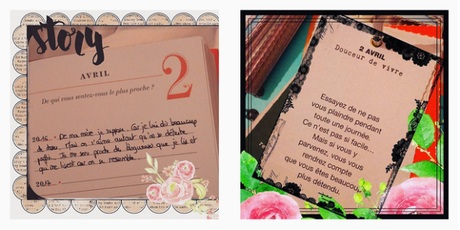 story
AVRIL
2
De qui vous sentez-vous le plus proche ?
2016 - De ma mère je suppose. Car je lui dis beaucoup
de trucs. Mais on s'aime autant qu'on se déteste
parfois. Je me sens proche de blogueuses que je lis et
qui me lisent car on se ressemble.
2017 -
2 AVRIL
Douceur de vivre
Essayez de ne pas
vous plaindre pendant
toute une journée.
Ce n'est pas si facile...
Mais si vous y
parvenez, vous vous
rendrez compte
que vous êtes beaucoup
plus détendu.